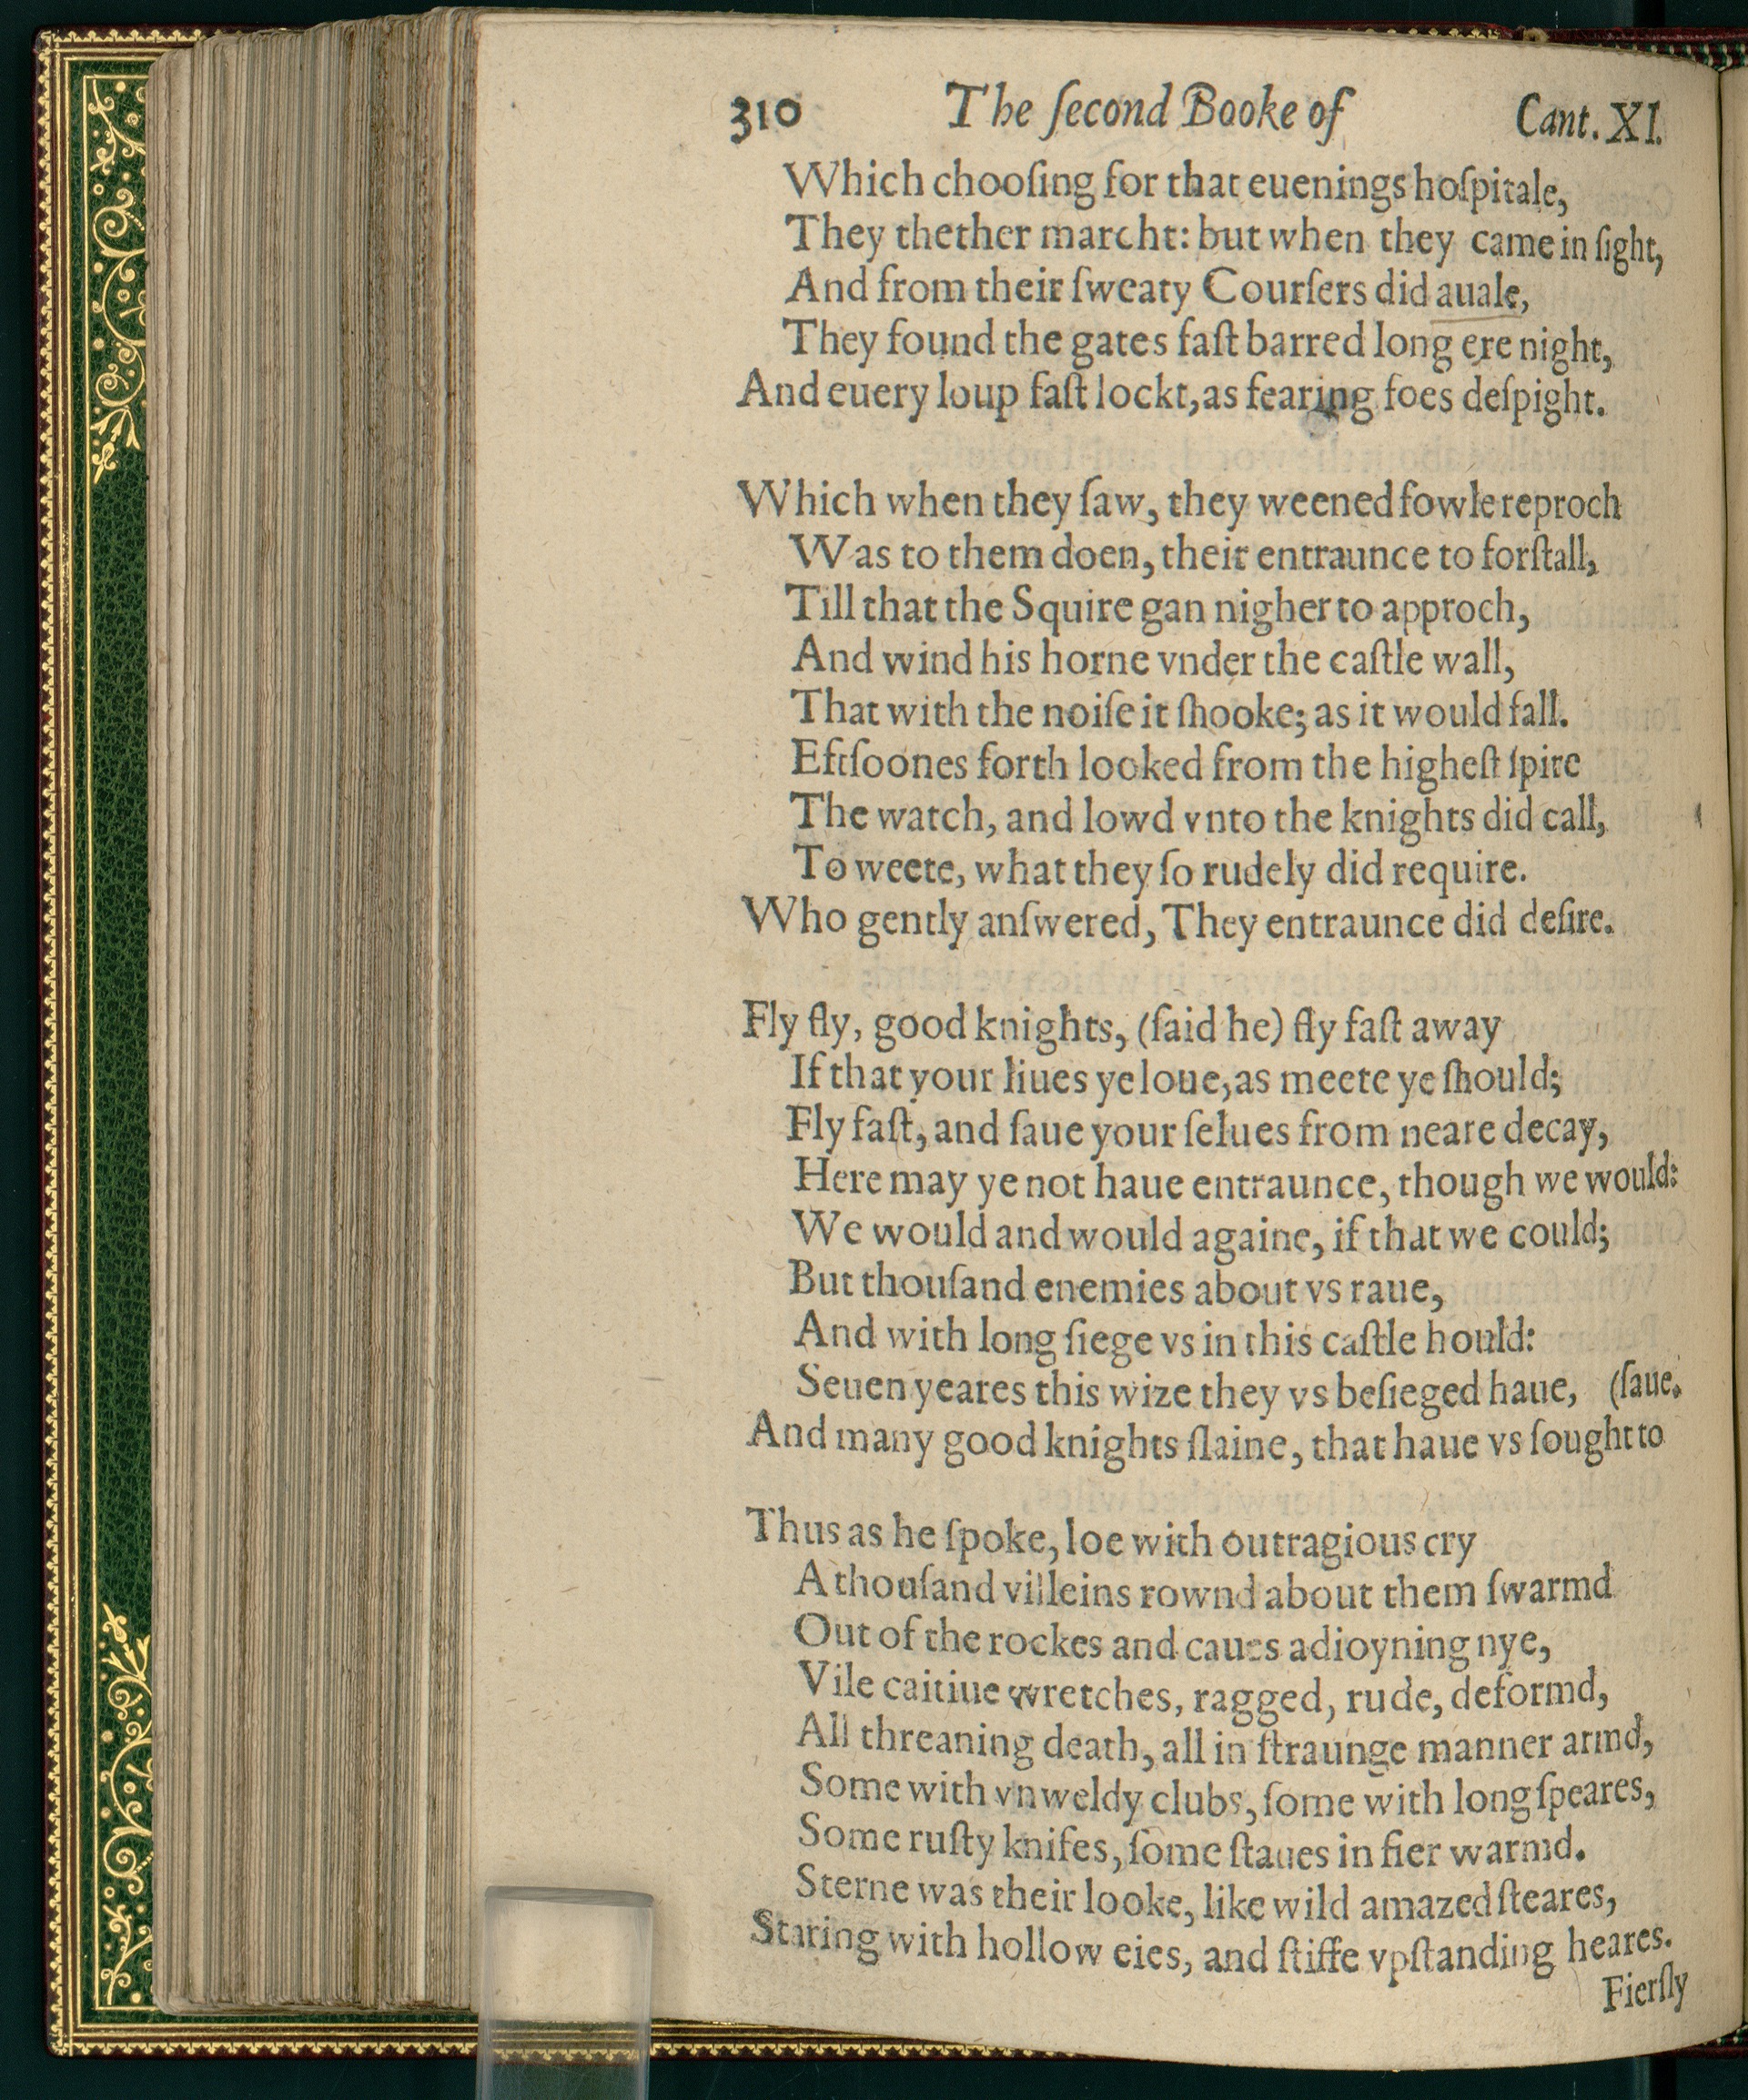 310 The ſecond Booke of Cant. XI.
Which chooſing for that euenings hoſpitale,
They thether marcht: but when they came in ſight,
And from their ſweaty Courſers did auale,
They found the gates faſt barred long ere night,
And euery loup faſt lockt, as fearing foes deſpight.
Which when they ſaw, they weened fowle reproch
Was to them doen, their entraunce to forſtall,
Till that the Squire gan nigher to approch,
And wind his horne vnder the caſtle wall,
That with the noiſe it ſhooke; as it would fall.
Eftſoones forth looked from the higheſt ſpire
The watch, and lowd vnto the knights did call,
To weete, what they ſo rudely did require.
Who gently anſwered, They entraunce did deſire.
Fly fly, good knights, (ſaid he) fly faſt away
If that your liues ye loue, as meete ye ſhould;
Fly faſt, and ſaue your ſelues from neare decay,
Here may ye not haue entraunce, though we would:
We would and would againe, if that we could;
But thouſand enemies about vs raue,
And with long ſiege vs in this caſtle hould:
Seuen yeares this wize they vs beſieged haue, (ſaue.
And many good knights ſlaine, that haue vs ſought to
Thus as he ſpoke, loe with outragious cry
A thouſand villeins rownd about them ſwarmd
Out of the rockes and caues adioyning nye,
Vile caitiue wretches, ragged, rude, deformd,
All threaning death, all in ſtraunge manner armd,
Some with vnweldy clubs, ſome with long ſpeares,
Some ruſty knifes, ſome ſtaues in fier warmd.
Sterne was their looke, like wild amazed ſteares,
Staring with hollow eies, and ſtiffe vpſtanding heares.
Fierſly